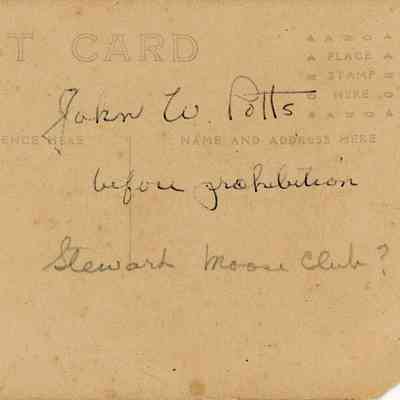 T CARD
PLACE
STAMP
HERE
John W. Potts
ENCE HERE
NAME AND ADDRESS HERE
before prohibition
Stewart Moose Club?